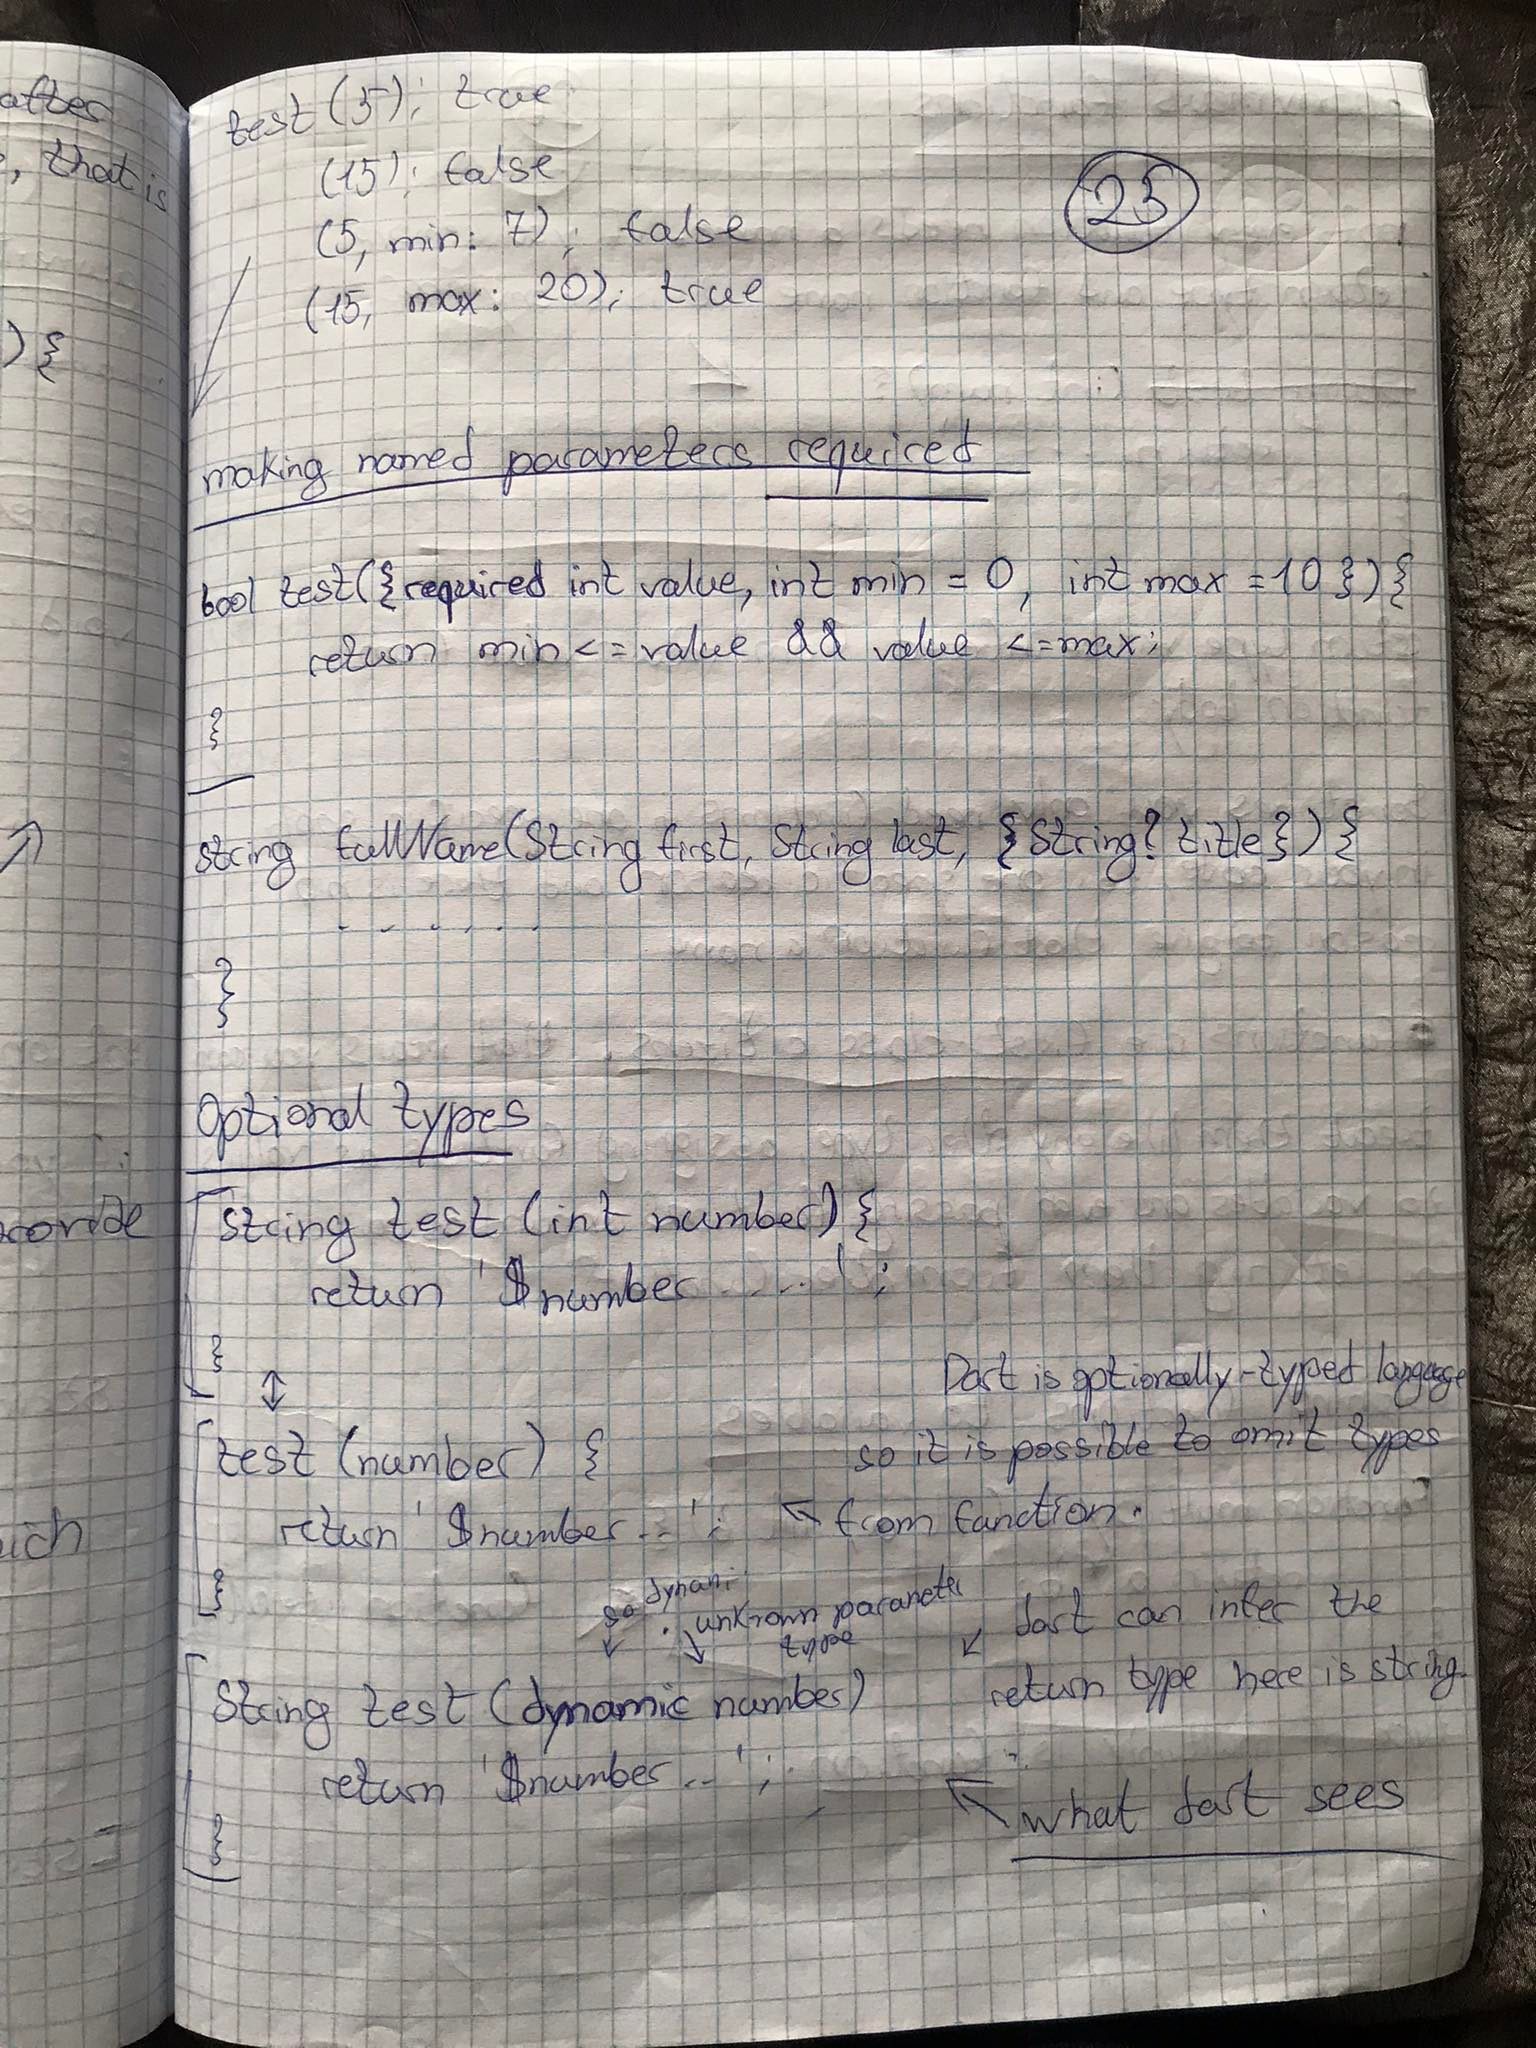 after
, that is
) {
provide
ich
test (5); true
(15); false
(5, min: 7); false
(15, max: 20); true
25
making named parameters required
bool test({required int value, int min = 0, int max = 10 }) {
return min <= value && value <= max;
}
string fullName(String first, String last, {String? title}) {
. . . . . .
}
Optional types
string test (int number) {
return '$number . . . . . ';
}
Dart is optionally-typed language
so it is possible to omit types
from function.
test (number) {
return '$number . . ';
}
so dynami
unknown parameter
type
dart can infer the
return type here is string.
String test (dynamic number)
return '$number . . ';
}
what dart sees